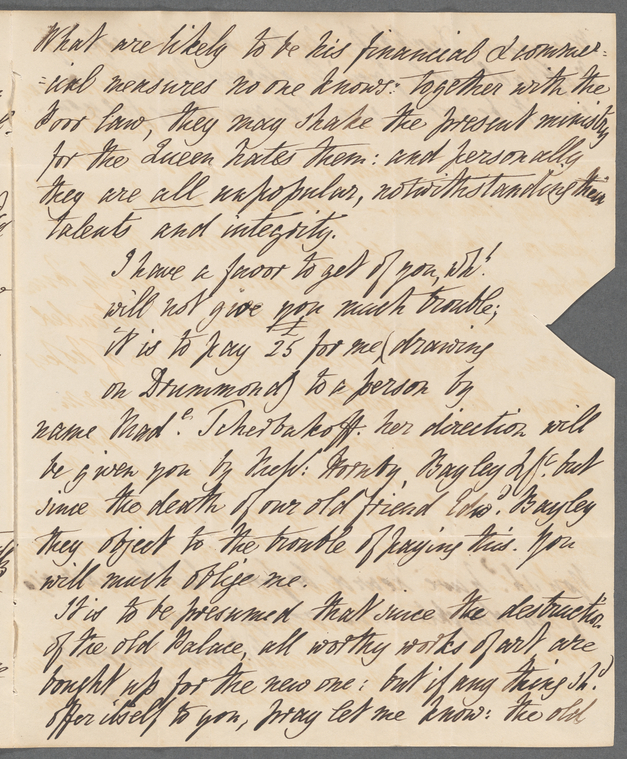 What are likely to be his financial & commer=
=cial measures no one knows: together with the
Poor law, they may shake the present ministry
for the Queen hates them: and personally
they are all unpopular, notwithstanding their
talents and integrity.
I have a favor to get of you, wh!
will not give you much trouble;
it is to pay £25 for me (drawing
on Drummond) to a person by
name Made. Tcherbukoff. her direction will
be given you by Messrs: Hornby, Bayley & Co. but
since the death of our old friend Edwd. Bayley
they object to the trouble of paying this. You
will much oblige me.
It is to be presumed that since the destruction
of the old Palace, all worthy works of art are
bought up for the new one: but if any thing shd.
offer itself to you, pray let me know: the old